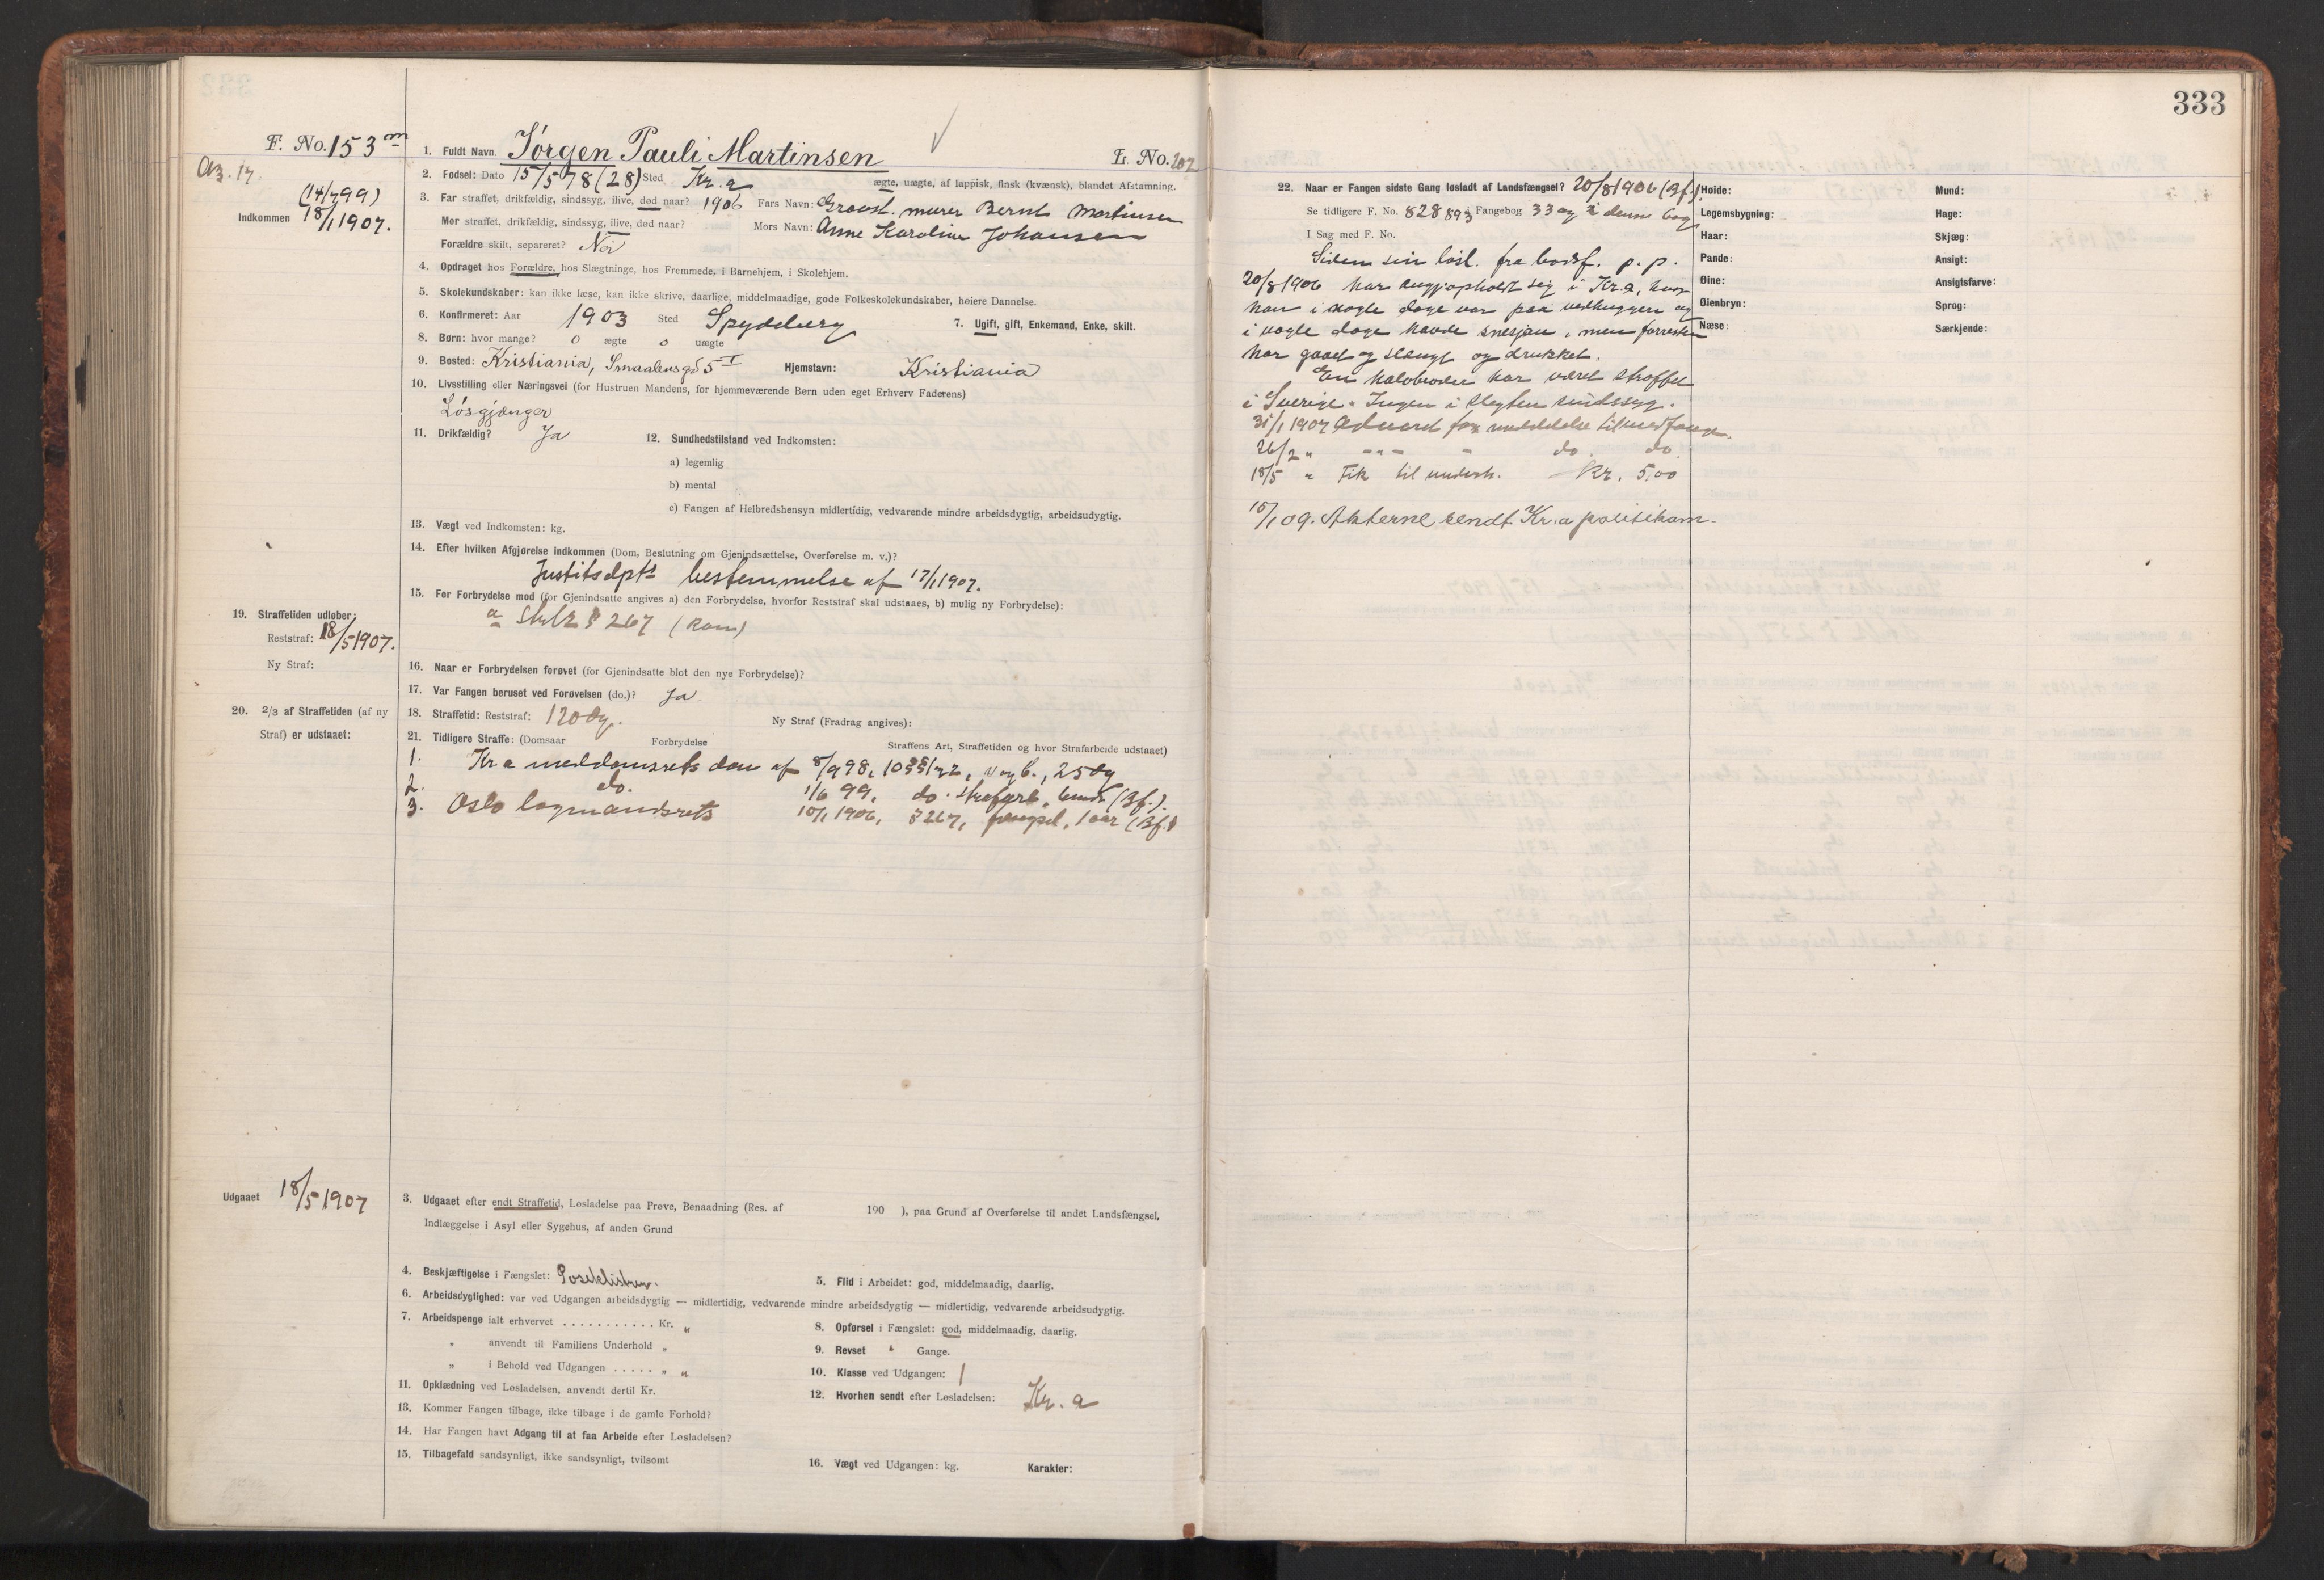 F. No. 153 m
1. Fuldt Navn. Jörgen Pauli Martinsen L. No. 202
2. Fødsel: Dato 15/5 78 (28) Sted Kr.a ægte, uægte, af lappisk, finsk (kvænsk), blandet Afstamning.
(14/7 99)
Indkommen 18/1 1907.
3. Far straffet, drikfældig, sindssyg, ilive, død naar? 1906 Fars Navn: Grovst. murer Bernt Martinsen
Mor straffet, drikfældig, sindssyg, ilive, død naar? Mors Navn: Anne Karoline Johansen
Forældre skilt, separeret? Nei
4. Opdraget hos Forældre, hos Slægtninge, hos Fremmede, i Barnehjem, i Skolehjem.
5. Skolekundskaber: kan ikke læse, kan ikke skrive, daarlige, middelmaadige, gode Folkeskolekundskaber, høiere Dannelse.
6. Konfirmeret: Aar 1903 Sted Spydeberg 7. Ugift, gift, Enkemand, Enke, skilt.
8. Børn: hvor mange? 0 ægte 0 uægte
9. Bosted: Kristiania, Smaalensgd 5 I Hjemstavn: Kristiania
10. Livsstilling eller Næringsvei (for Hustruen Mandens, for hjemmeværende Børn uden eget Erhverv Faderens)
Lösgjænger
11. Drikfældig? Ja 12. Sundhedstilstand ved Indkomsten:
a) legemlig
b) mental
c) Fangen af Helbredshensyn midlertidig, vedvarende mindre arbeidsdygtig, arbeidsudygtig.
13. Vægt ved Indkomsten: kg.
14. Efter hvilken Afgjørelse indkommen (Dom, Beslutning om Gjenindsættelse, Overførelse m. v.)?
Justitsdpts bestemmelse af 17/1 1907.
15. For Forbrydelse mod (for Gjenindsatte angives a) den Forbrydelse, hvorfor Reststraf skal udstaaes, b) mulig ny Forbrydelse):
a § 267 (Ran)
19. Straffetiden udløber:
Reststraf: 18/5 1907.
Ny Straf:
16. Naar er Forbrydelsen forøvet (for Gjenindsatte blot den nye Forbrydelse)?
17. Var Fangen beruset ved Forøvelsen (do.)? Ja
18. Straffetid: Reststraf: 120 dg. Ny Straf (Fradrag angives):
20. 2/3 af Straffetiden (af ny
Straf) er udstaaet:
21. Tidligere Straffe: (Domsaar Forbrydelse Straffens Art, Straffetiden og hvor Strafarbeide udstaaet)
1. Kr.a meddomsrets dom af 8/9 98, v og b., 25 dg
2. do. 1/6 99, do. strafarb. (Bf.).
3. Oslo lagmandsrets 10/1 1906, § 267, fengsel, 1 aar (Bf.)
Udgaaet 18/5 1907
3. Udgaaet efter endt Straffetid, Løsladelse paa Prøve, Benaadning (Res. af 190 ), paa Grund af Overførelse til andet Landsfængsel,
Indlæggelse i Asyl eller Sygehus, af anden Grund
4. Beskjæftigelse i Fængslet: Poseklistrer. 5. Flid i Arbeidet: god, middelmaadig, daarlig.
6. Arbeidsdygtighed: var ved Udgangen arbeidsdygtig — midlertidig, vedvarende mindre arbeidsdygtig — midlertidig, vedvarende arbeidsudygtig.
7. Arbeidspenge ialt erhvervet . . . . . . . . . . . Kr. „ 8. Opførsel i Fængslet: god, middelmaadig, daarlig.
„ anvendt til Familiens Underhold „ 9. Revset " Gange.
„ i Behold ved Udgangen . . . . . „ „ 10. Klasse ved Udgangen: 1
11. Opklædning ved Løsladelsen, anvendt dertil Kr. 12. Hvorhen sendt efter Løsladelsen: Kr.a
13. Kommer Fangen tilbage, ikke tilbage i de gamle Forhold?
14. Har Fangen havt Adgang til at faa Arbeide efter Løsladelsen?
15. Tilbagefald sandsynligt, ikke sandsynligt, tvilsomt 16. Vægt ved Udgangen: kg. Karakter:
333
22. Naar er Fangen sidste Gang løsladt af Landsfængsel? 20/8 1906 (Bf.)
Se tidligere F. No. 828 893 i Fangebog 33 og i denne bog
I Sag med F. No.
Siden sin løsl. fra bodsf. p. p.
20/8 1906 har opholdt sig i Kr.a, hvor
han i nogle dage var paa vedhuggeri og
i nogle dage havde snesjau, men forresten
har gaaet og slængt og drukket.
En halvbroder har været straffet
i Sverige. Ingen i slegten sindssyg.
31/1 1907 Advaret for meddelelse til medfange.
26/2 " do. do.
18/5 " Fik til underh. Kr. 5,00
15/1 09. Akterne sendt Kr.a politikam.
Høide: Mund:
Legemsbygning: Hage:
Haar: Skjæg:
Pande: Ansigt:
Øine: Ansigtsfarve:
Øienbryn: Sprog:
Næse: Særkjende: